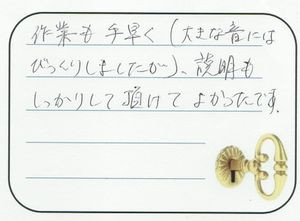 作業も手早く(大きな音には
びっくりしましたが)、説明も
しっかりして頂けてよかったです。